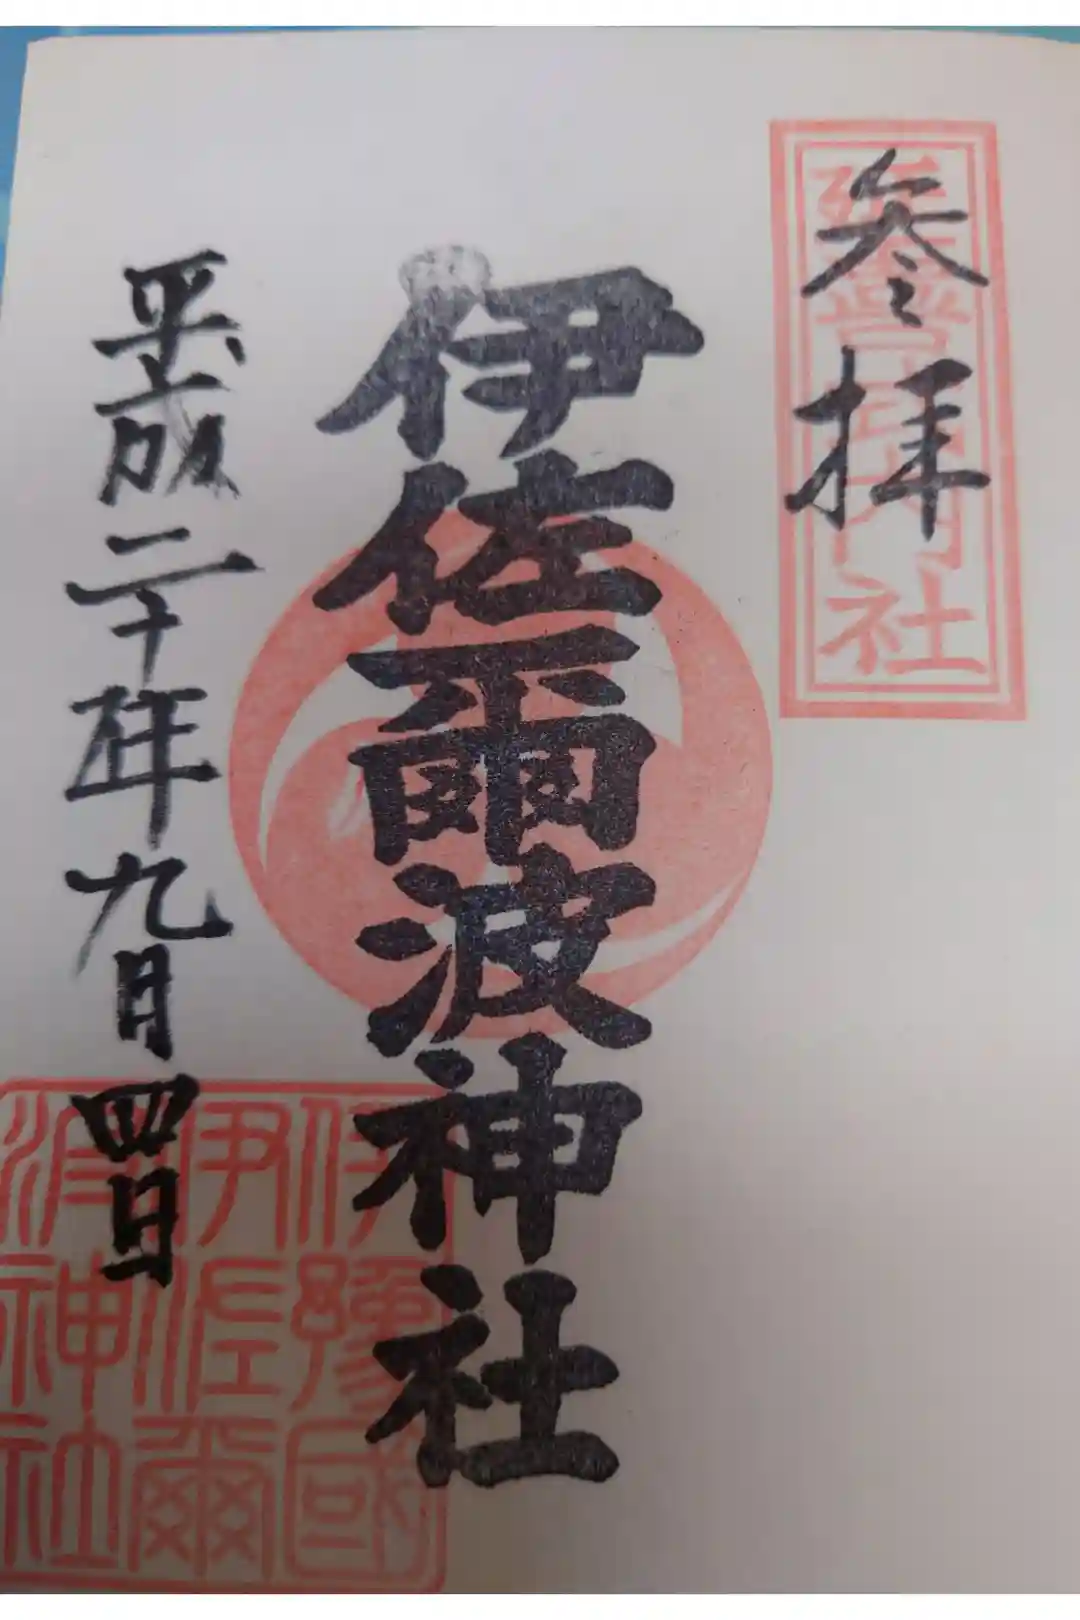 参拝
延喜式内社
伊佐爾波神社
平成二十年九月四日
伊豫國
伊佐爾
波神社